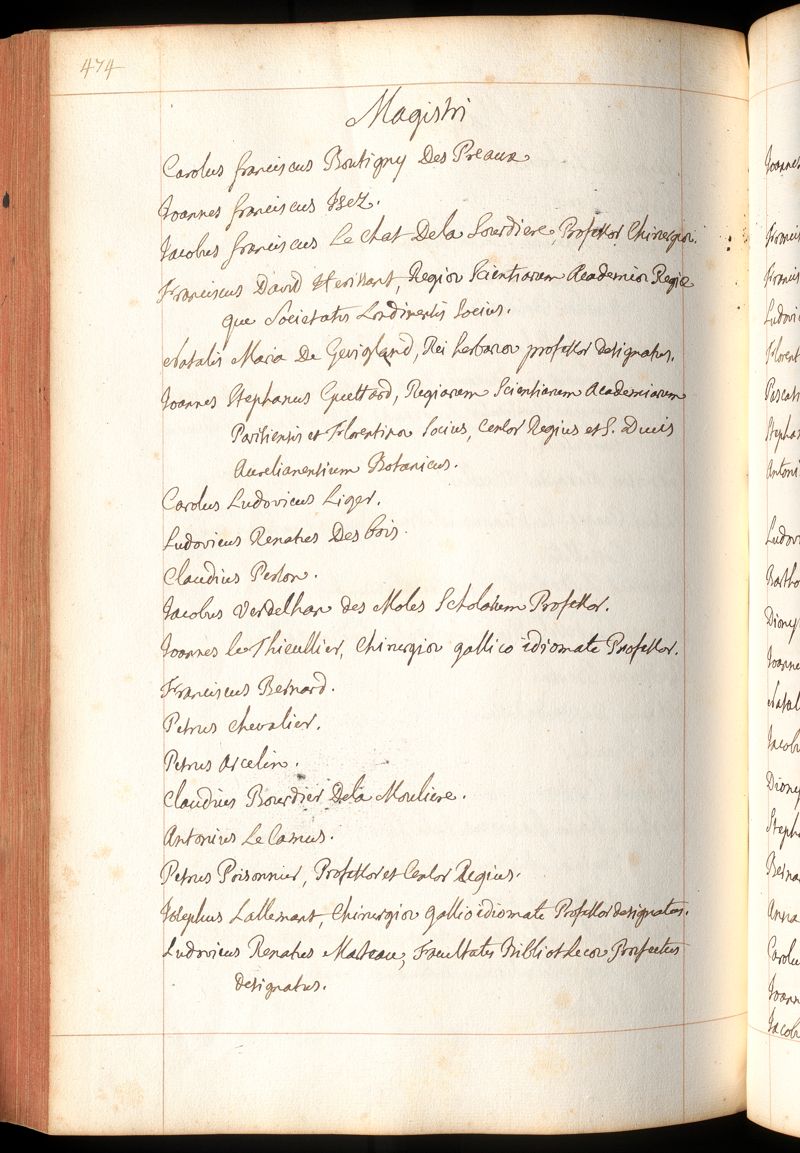 474
Magistri
Carolus franciscus Boutigny Des Preaux
Joannes franciscus Isez.
Jacobus franciscus Le Chat Dela Sourdiere, Professor Chirurgiæ.
Franciscus David Herissant, Regiæ Scientiarum Academiæ Regiæ
que Societatis Londinensis Socius.
Natalis Maria De Gevigland, Rei herbariæ professor designatus.
Joannes Stephanus Guettard, Regiarum Scientiarum Academiarum
Parisiensis et Florentinæ Socius, Censor Regius et S. Ducis
Aurelianensium Botanicus.
Carolus Ludovicus Liger.
Ludovicus Renatus Des bois.
Claudius Person.
Jacobus Verdelhan des Moles Scholarum Professor.
Joannes le Thieullier, Chirurgiæ gallico idiomate Professor.
Franciscus Bernard.
Petrus Chevalier.
Petrus Arcelin.
Claudius Bourdier Dela Mouliere.
Antonius Le Camus.
Petrus Poisonnier, Professor et Censor Regius.
Josephus Lallemant, Chirurgiæ gallico idiomate Professor designatus.
Ludovicus Renatus Marteau, Facultatis Bibliothecæ Præfectus
designatus.